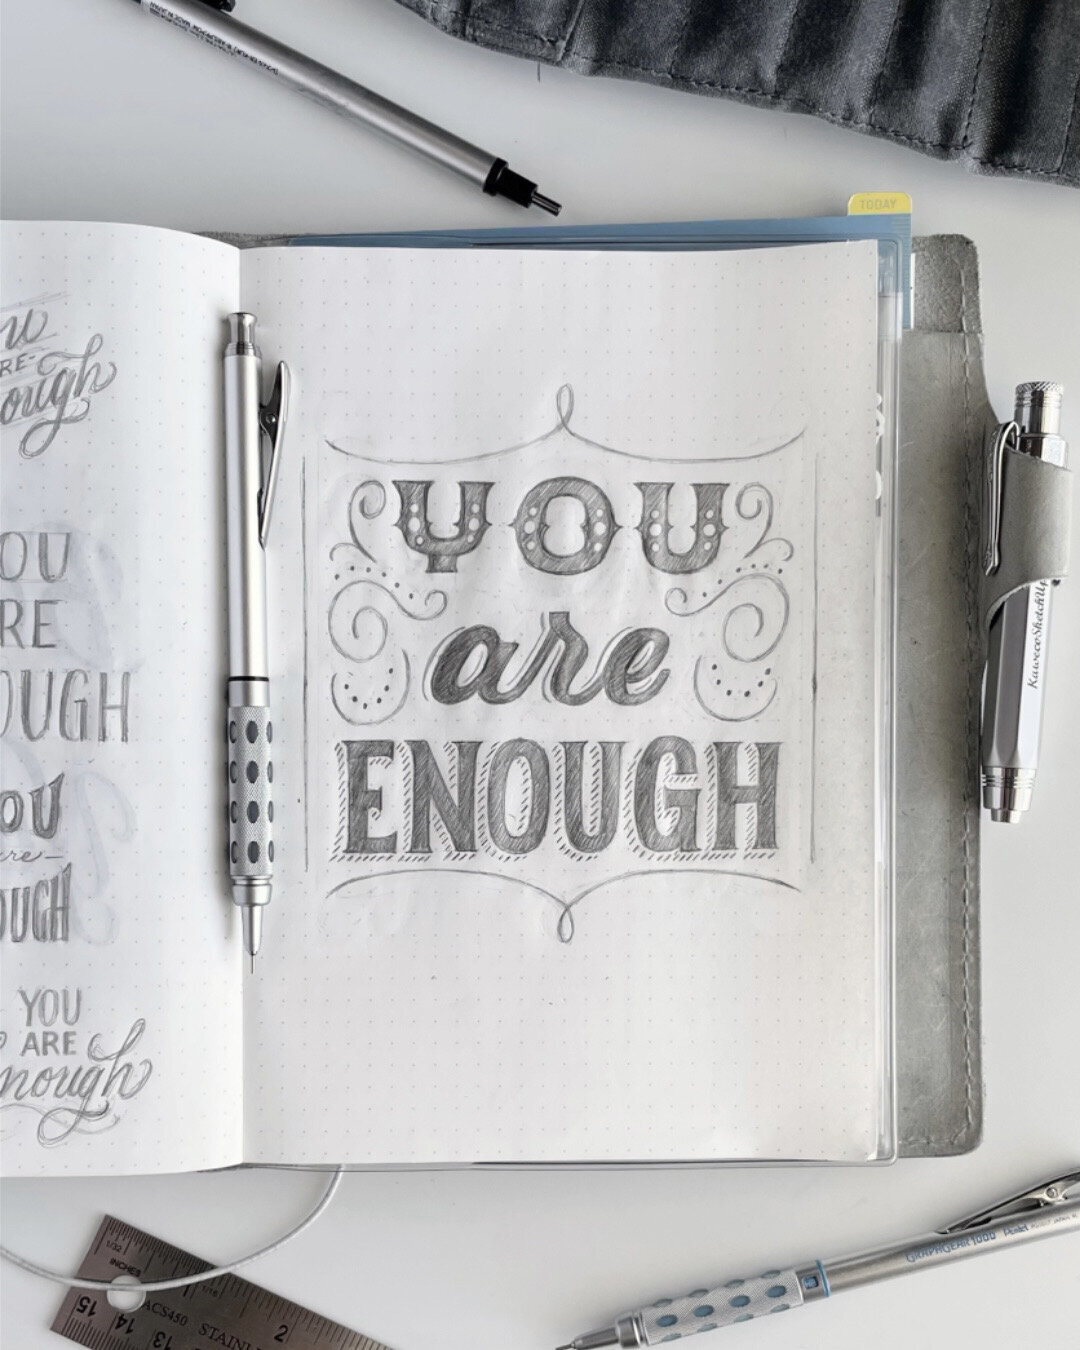 TODAY
RE
ough
YOU
are
ENOUGH
OU
RE
OUGH
OU
are
OUGH
YOU
ARE
nough
Kaweco Sketch Up
GRAPHGEAR 1000 Pentel
1/32
INCHES
1/16
ACS450 STAINL
15 14 13
2